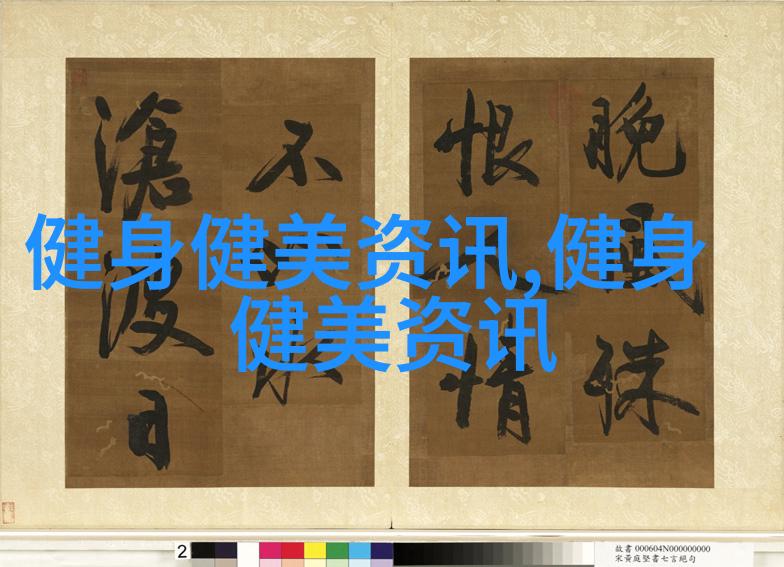 健身健美资讯,健身
健美资讯
晚殊
恨人情
不
滄波日
2
故書 000604N000000000
宋黃庭堅書七言絕句